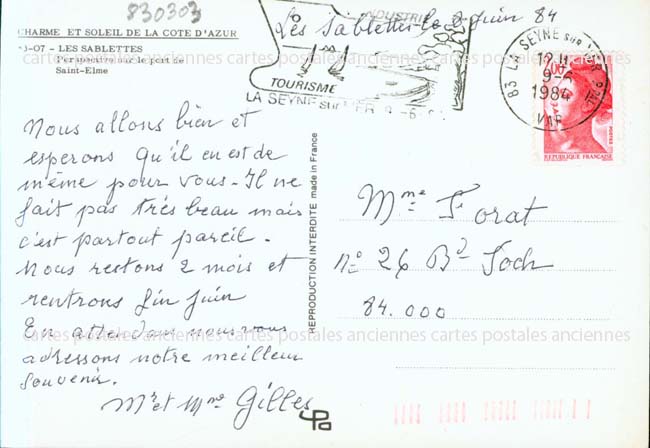 830303
CHARME ET SOLEIL DE LA COTE D'AZUR
83-07 - LES SABLETTES
Perspective sur le port de
Saint-Elme
Les Sablettes le 8 Juin 84
INDUSTRIE
TOURISME
LA SEYNE sur MER
83 LA SEYNE sur MER
9-6
1984
VAR
2,00
POSTES
REPUBLIQUE FRANÇAISE
Nous allons bien et
esperons qu'il en est de
même pour vous - Il ne
fait pas très beau mais
c'est partout pareil.
Nous restons 2 mois et
rentrons fin juin
En attendant nous vous
adressons notre meilleur
souvenir.
Mr et Mme Gilles
REPRODUCTION INTERDITE made in France
Mme Forat
n° 26 Bd Foch
84.000
cartes postales anciennes cartes postales anciennes cartes postales anciennes